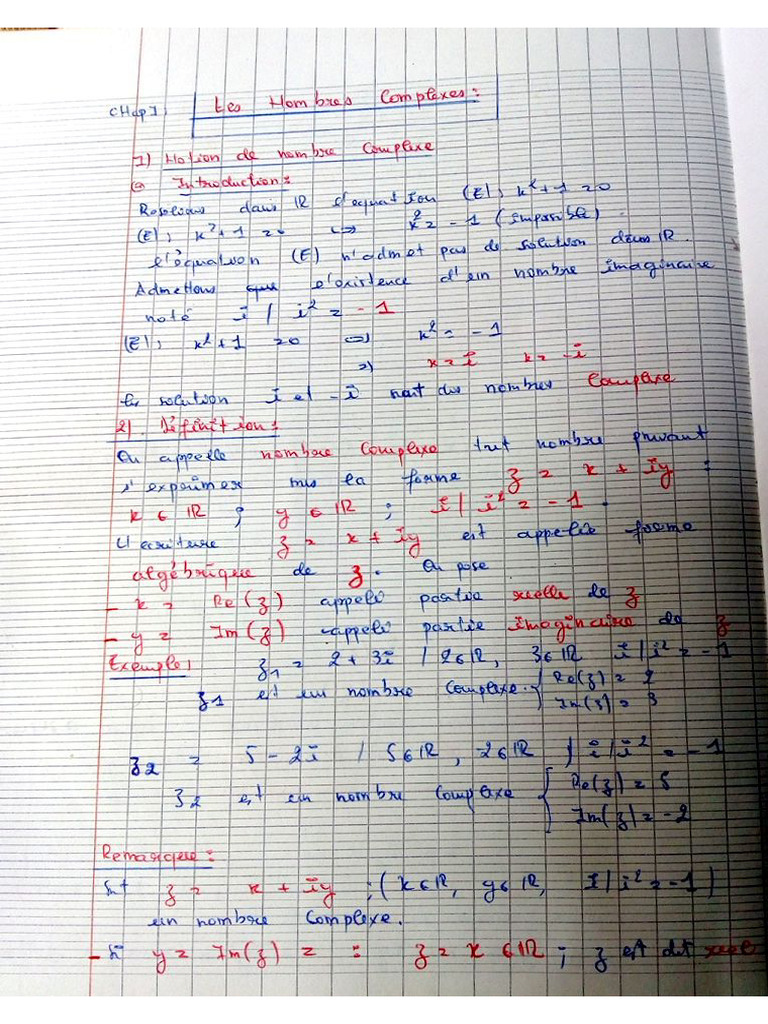 CHap I: Les Nombres Complexes:
I) Notion de nombre Complexe
① Introduction:
Resolvons dans IR l'equation (E), x²+1=0
(E), x²+1=0 <=> x²=-1 (impossible).
L'équation (E) n'admet pas de solution dans IR.
Admettons que l'existence d'un nombre imaginaire
noté i / i² = -1
(E), x²+1=0 <=> x² = -1
=) x=i x=-i
les solution i et -i sont des nombres Complexe
2). Définition:
On appelle nombre Complexe tout nombre pouvant
s'exprimer sous la forme z = x + iy :
x ∈ IR ; y ∈ IR ; i / i² = -1.
L'ecriture z = x + iy est appelée forme
algébrique de z. On pose
- x = Re(z) appelé partie reelle de z
- y = Im(z) appelé partie imaginaire de z
Exemple: z1 = 2 + 3i / 2∈IR, 3∈IR i/i²=-1
z1 est un nombre Complexe. { Re(z) = 2
Im(z) = 3
z2 = 5 - 2i / 5∈IR, 2∈IR / i/i² = -1
z2 est un nombre Complexe { Re(z) = 5
Im(z) = -2
Remarque:
Snt z = x + iy ; (x∈IR, y∈IR, i/i²=-1)
un nombre Complexe.
- Si y = Im(z) = : z = x ∈ IR ; z est dit reel